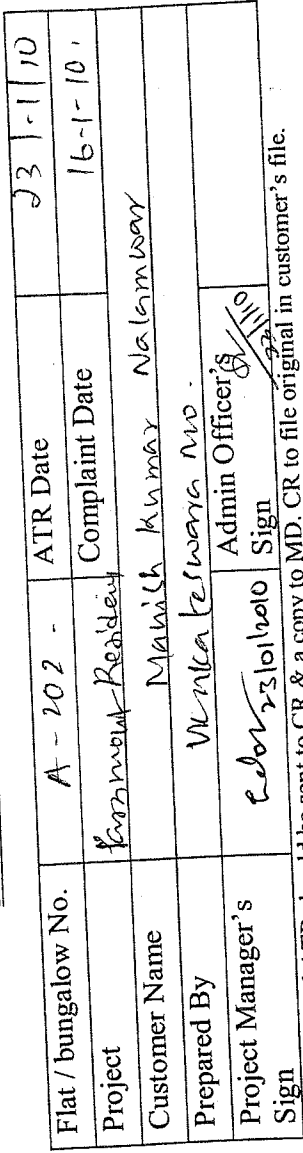 Flat / bungalow No. A - 202 - ATR Date 23 1-1/10
Project Residency Complaint Date 16-1-10.
Customer Name Manish Kumar Nalamwar
Prepared By Venkateswara
Project Manager's Sign 23/01/2010 Admin Officer's Sign
should be sent to CR & a copy to MD. CR to file original in customer's file.